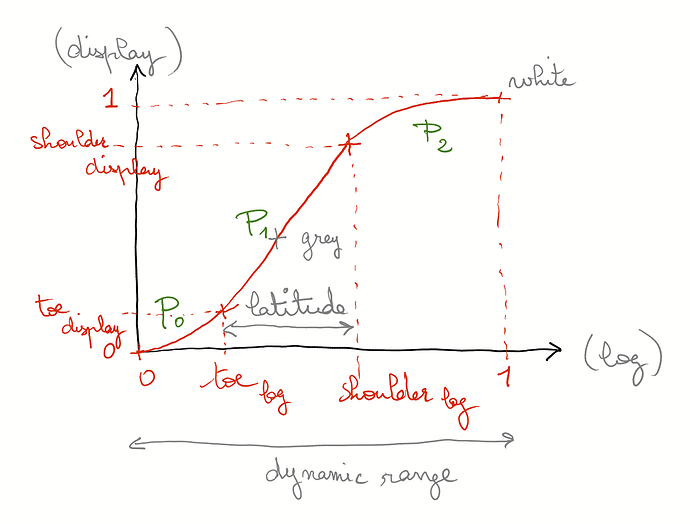 (display)
white
1
shoulder
display
P2
P1
grey
toe
display
P0
latitude
0
(log)
0
toe log
shoulder log
1
dynamic range